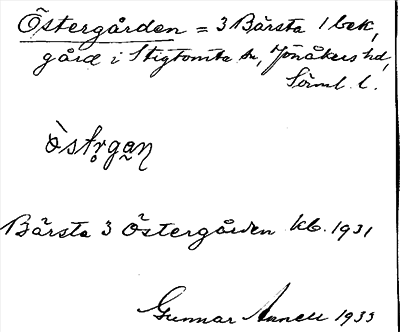 Östergården = 3 Bärsta 1 bek,
gård i Stigtomta sn, Jönåkers hd,
Sörml. l.
Bärsta 3 Östergården kb. 1931
Gunnar Annell 1933